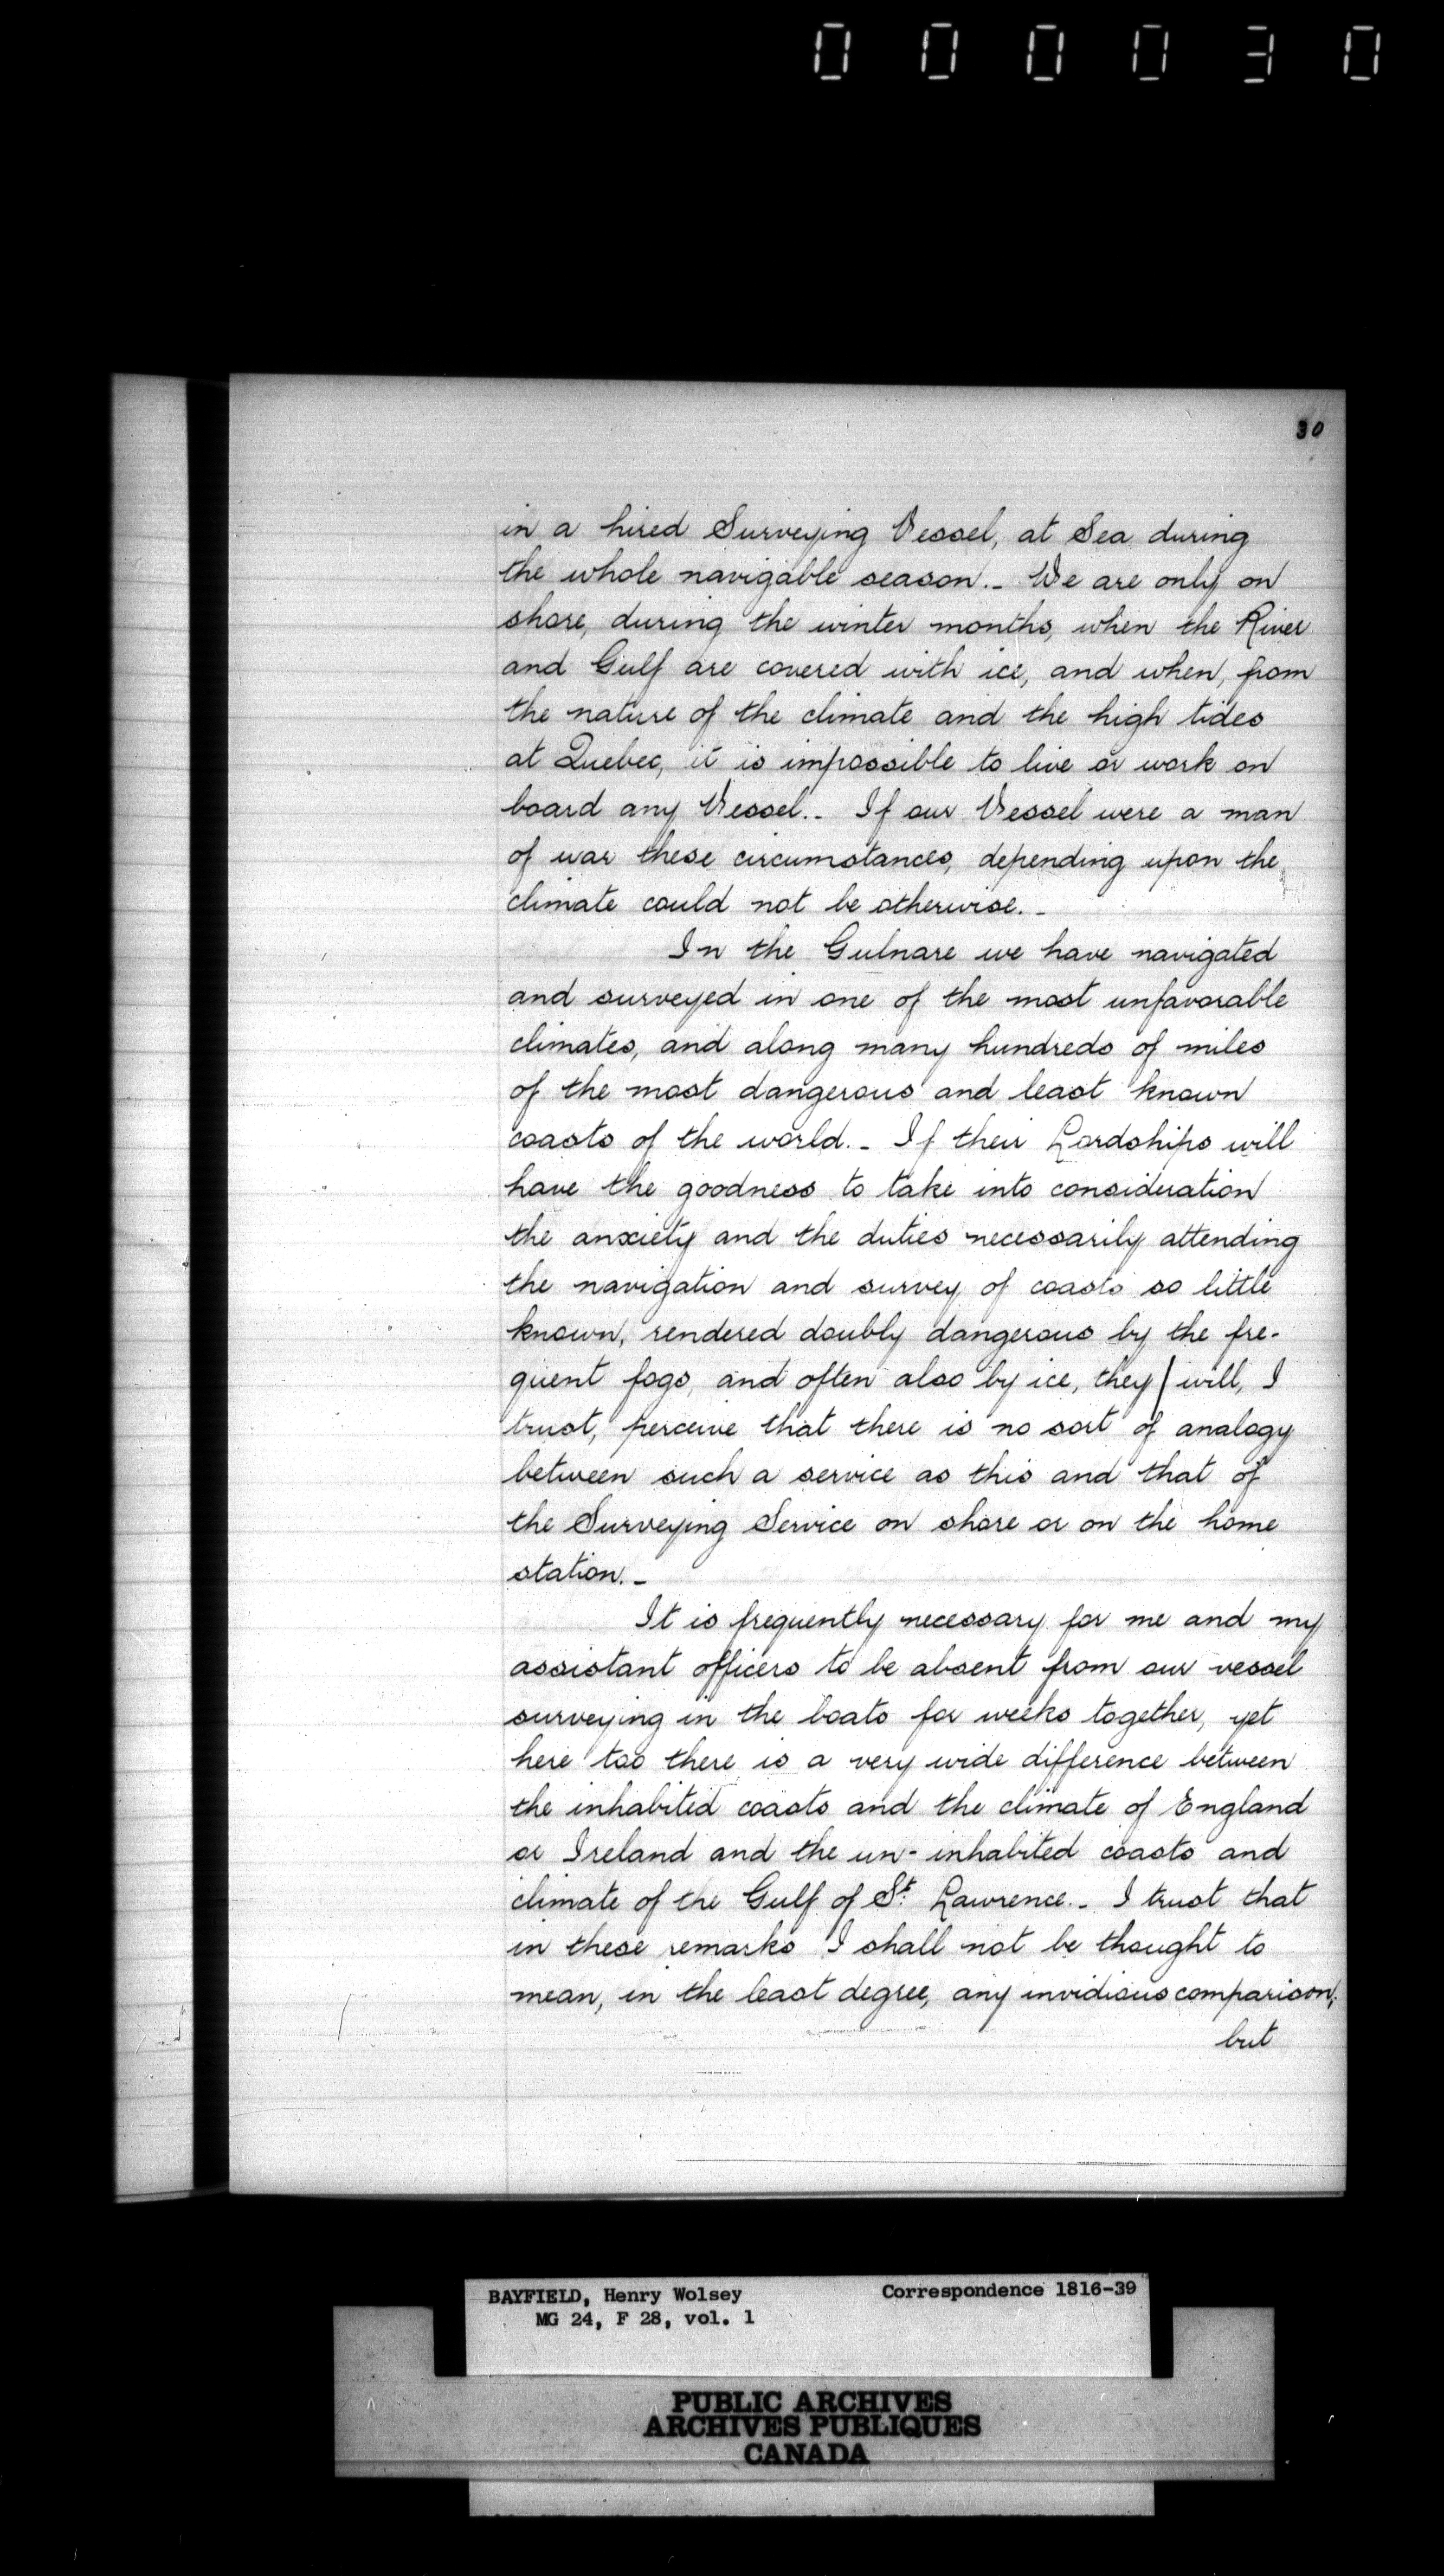 000030
30
in a hired Surveying Vessel, at Sea during
the whole navigable season._ We are only on
shore, during the winter months, when the River
and Gulf are covered with ice, and when, from
the nature of the climate and the high tides
at Quebec, it is impossible to live or work on
board any Vessel._ If our Vessel were a man
of war these circumstances, depending upon the
climate could not be otherwise._
In the Gulnare we have navigated
and surveyed in one of the most unfavorable
climates, and along many hundreds of miles
of the most dangerous and least known
coasts of the world._ If their Lordships will
have the goodness to take into consideration
the anxiety and the duties necessarily attending
the navigation and survey of coasts so little
known, rendered doubly dangerous by the fre-
quent fogs, and often also by ice, they | will, I
trust, perceive that there is no sort of analogy
between such a service as this and that of
the Surveying Service on shore or on the home
station._
It is frequently necessary for me and my
assistant officers to be absent from our vessel
surveying in the boats for weeks together, yet
here too there is a very wide difference between
the inhabited coasts and the climate of England
or Ireland and the un-inhabited coasts and
climate of the Gulf of St. Lawrence._ I trust that
in these remarks I shall not be thought to
mean, in the least degree, any invidious comparison;
but
BAYFIELD, Henry Wolsey Correspondence 1816-39
MG 24, F 28, vol. 1
PUBLIC ARCHIVES
ARCHIVES PUBLIQUES
CANADA